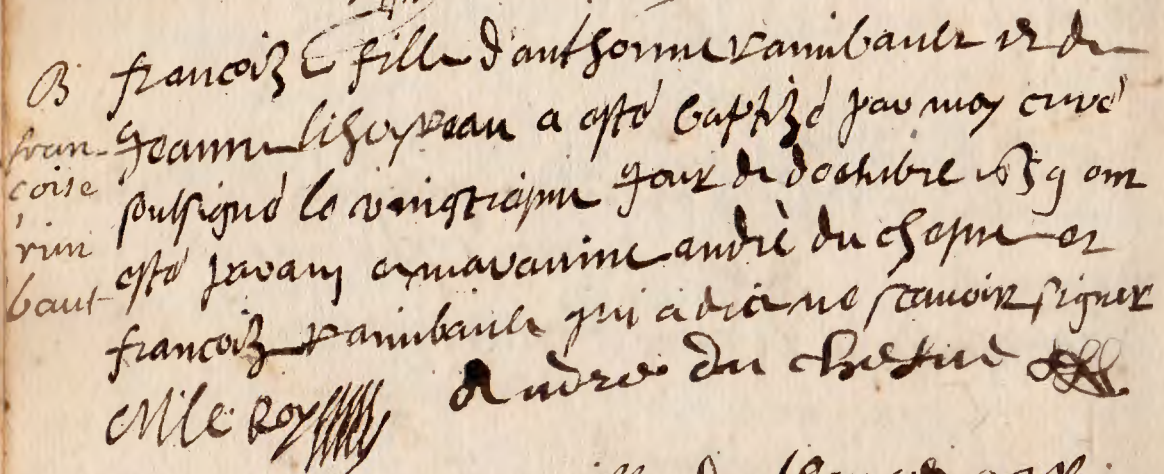 B
fran-
çoise
rim
baut
francoize fille d'anthoinne raimbault et de
Jeanne a esté baptizé par moy curé
soubsigné le vingtiesme jour de dectubre 1659 ont
esté parain et maranine andré du chesne et
francoize Raimbault qui a dict ne scavoir signer
M le Roy Andre du chesne